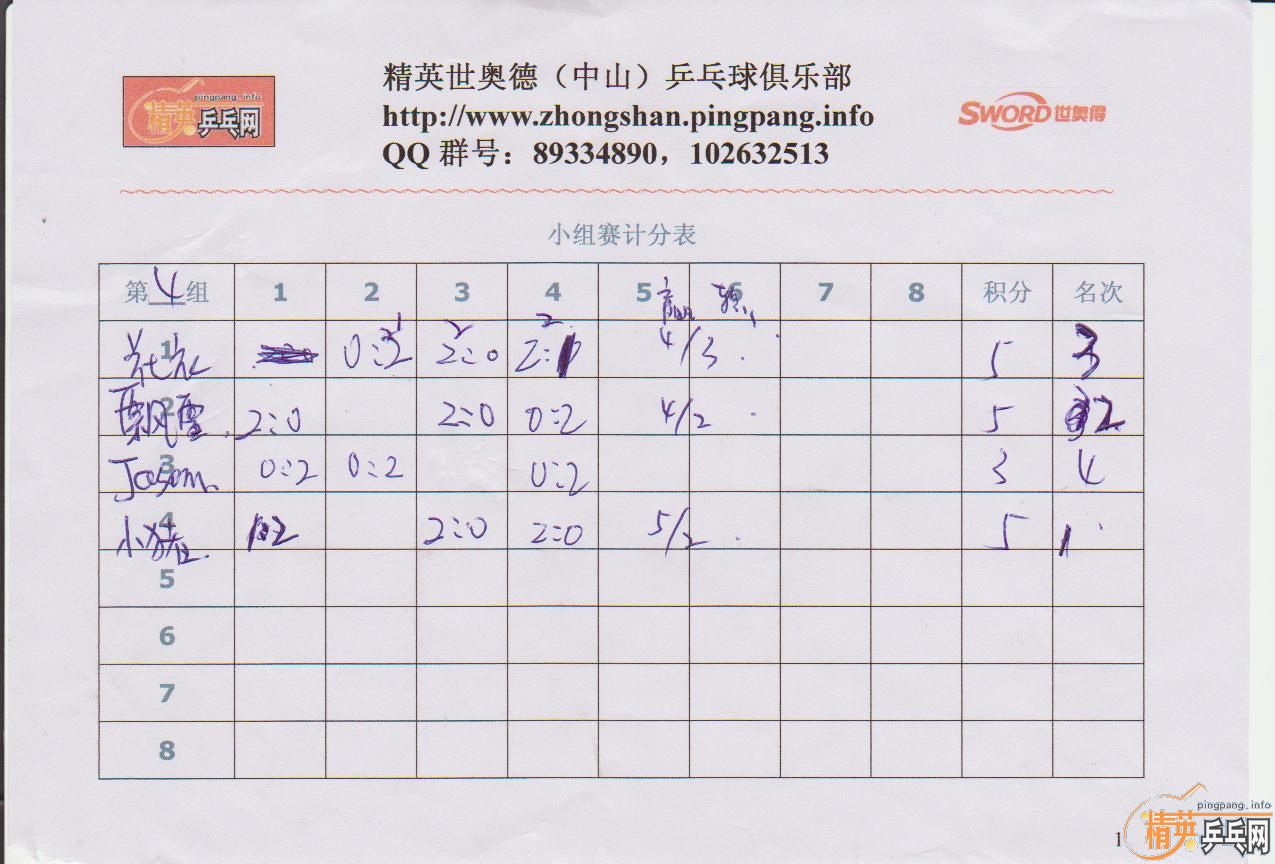 pingpang.info
精英乒乓网
精英世奥德（中山）乒乓球俱乐部
http://www.zhongshan.pingpang.info
QQ 群号：89334890，102632513
SWORD 世奥得
小组赛计分表
第 4 组 1 2 3 4 5 赢 6 输 7 8 积分 名次
1 2:0 4/3 5 3
2 飘雪 2:0 2:0 0:2 4/2 5 2
3 Jason 0:2 0:2 0:2 3 4
4 小猪 2:0 2:0 5/2 5 1
5
6
7
8
1
pingpang.info
精英乒乓网